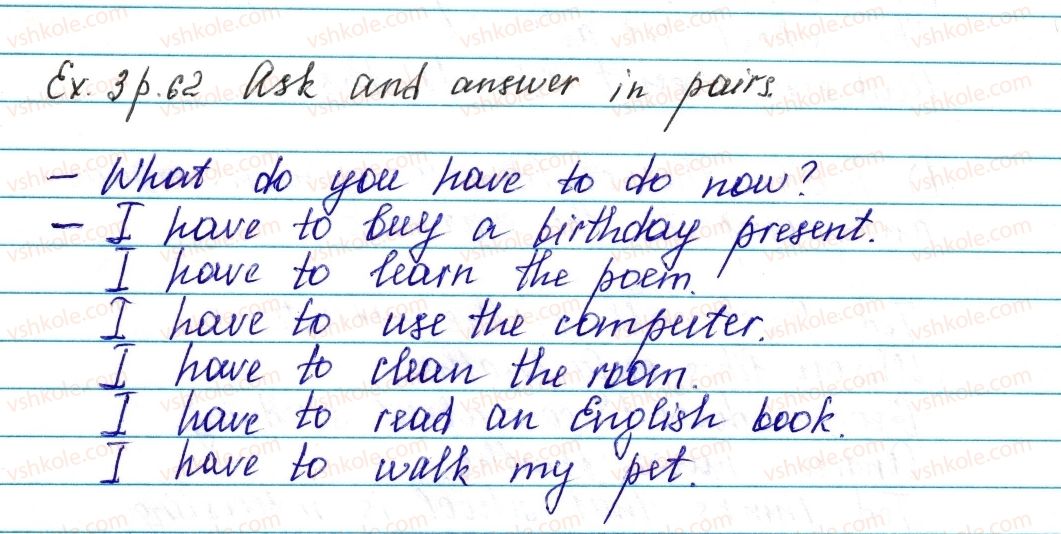 Ex. 3 p. 62 Ask and answer in pairs.
— What do you have to do now?
— I have to buy a birthday present.
I have to learn the poem.
I have to use the computer.
I have to clean the room.
I have to read an English book.
I have to walk my pet.